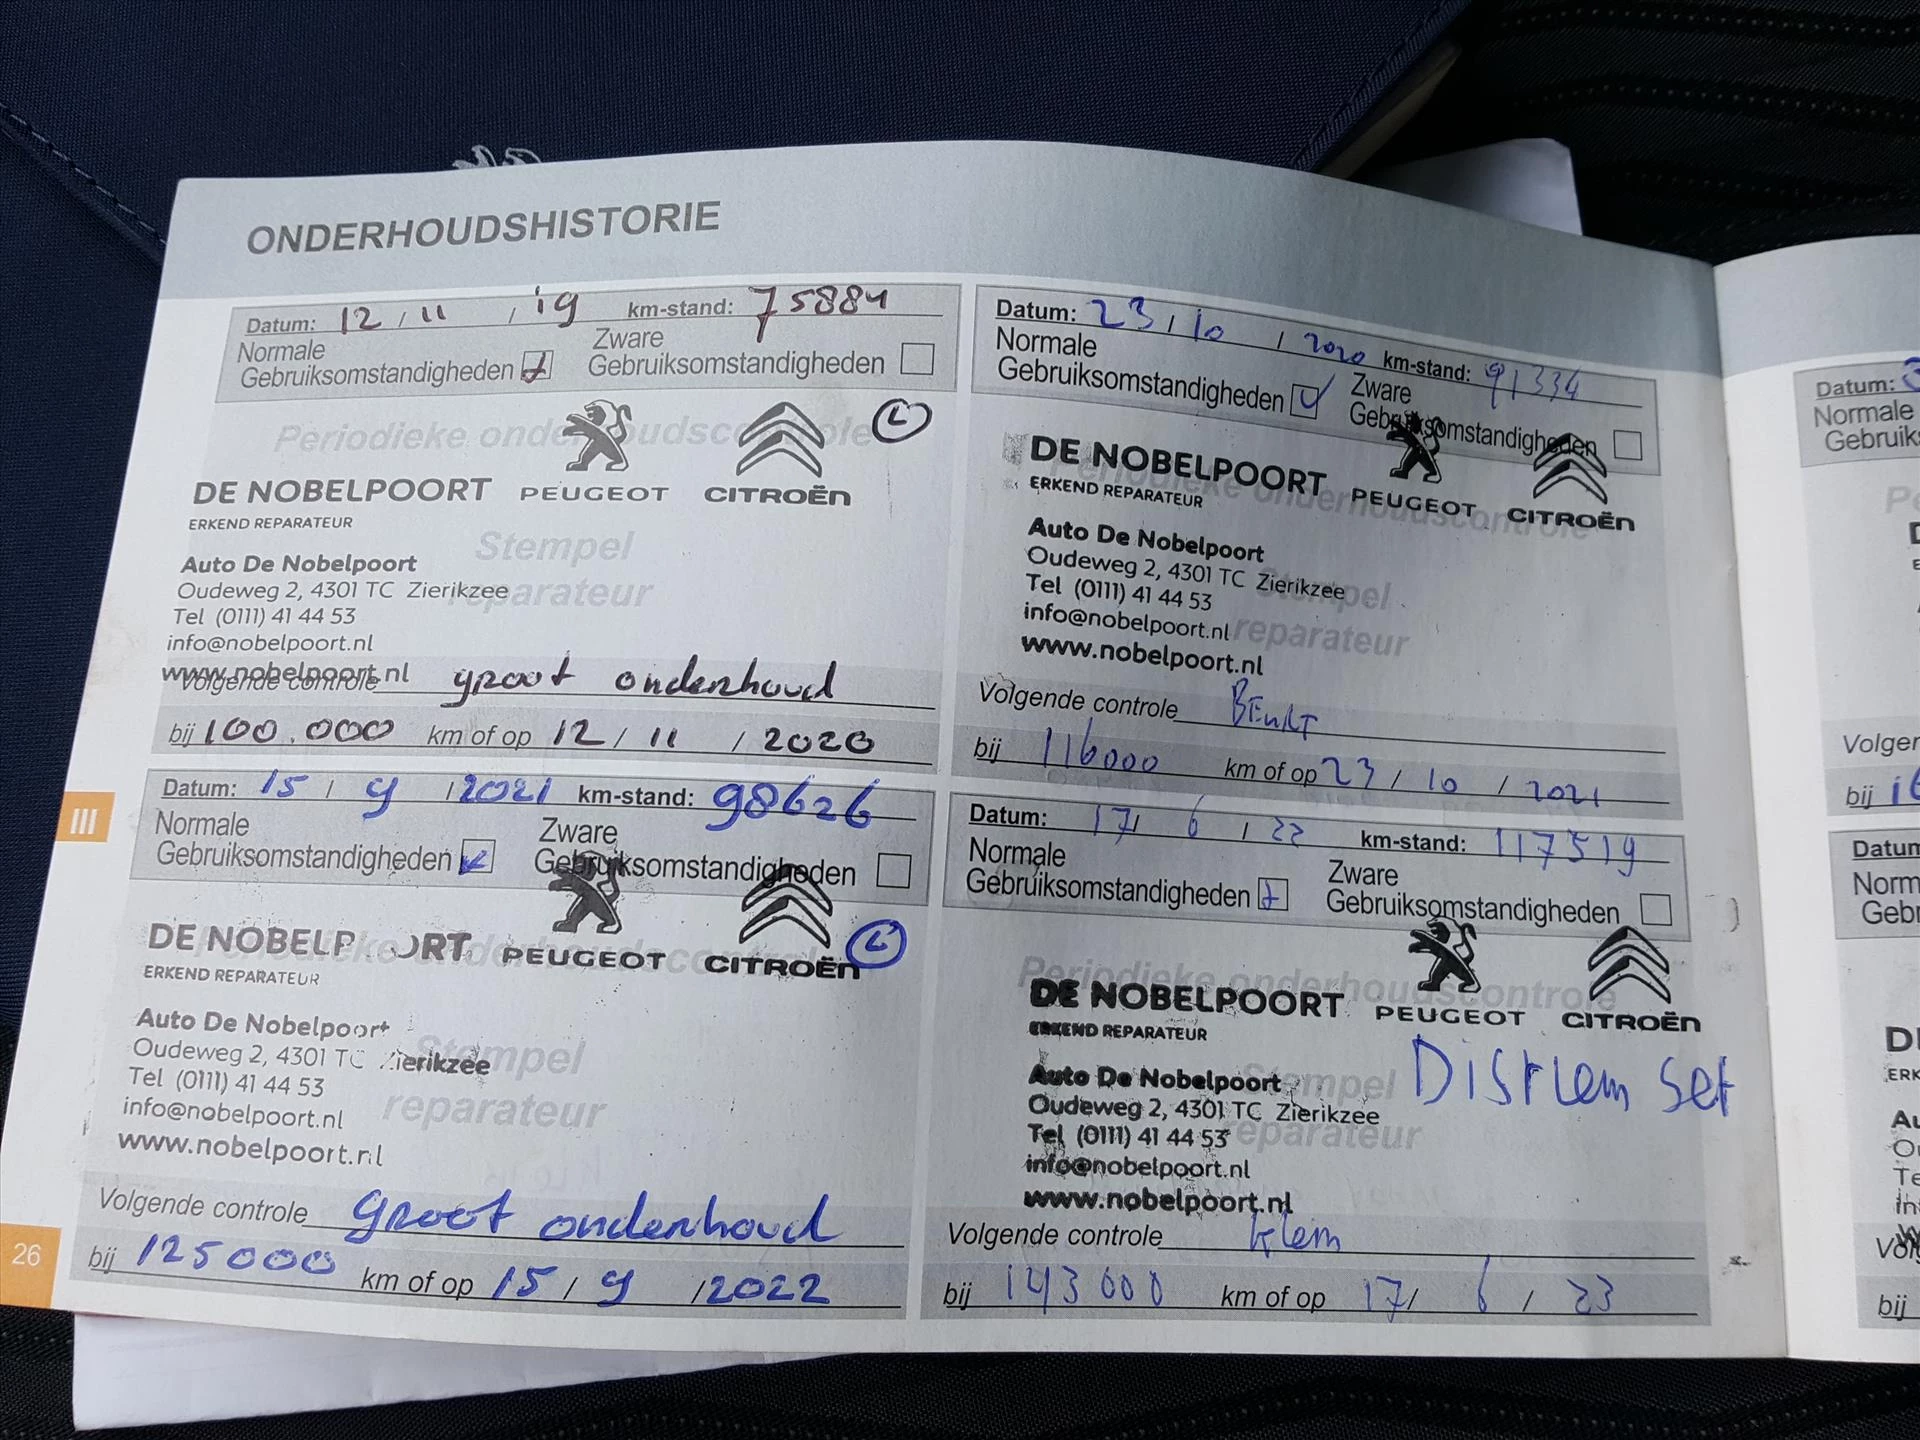 ONDERHOUDSHISTORIE
Datum: 12 / 11 / 19 km-stand: 75884
Normale
Gebruiksomstandigheden
Zware
Gebruiksomstandigheden
Periodieke onderhoudscontrole
L
DE NOBELPOORT PEUGEOT CITROËN
ERKEND REPARATEUR
Stempel
reparateur
Auto De Nobelpoort
Oudeweg 2, 4301 TC Zierikzee
Tel (0111) 41 44 53
info@nobelpoort.nl
www.nobelpoort.nl
Volgende controle groot onderhoud
bij 100.000 km of op 12 / 11 / 2020
Datum: 23 / 10 / 2020 km-stand: 91334
Normale
Gebruiksomstandigheden
Zware
Gebruiksomstandigheden
Periodieke onderhoudscontrole
DE NOBELPOORT PEUGEOT CITROËN
ERKEND REPARATEUR
Stempel
reparateur
Auto De Nobelpoort
Oudeweg 2, 4301 TC Zierikzee
Tel (0111) 41 44 53
info@nobelpoort.nl
www.nobelpoort.nl
Volgende controle
bij 116000 km of op 23 / 10 / 2021
III
Datum: 15 / 9 / 2021 km-stand: 98626
Normale
Gebruiksomstandigheden
Zware
Gebruiksomstandigheden
Periodieke onderhoudscontrole
L
DE NOBELPOORT PEUGEOT CITROËN
ERKEND REPARATEUR
Stempel
reparateur
Auto De Nobelpoort
Oudeweg 2, 4301 TC Zierikzee
Tel (0111) 41 44 53
info@nobelpoort.nl
www.nobelpoort.nl
Volgende controle groot onderhoud
bij 125000 km of op 15 / 9 / 2022
Datum: 17 / 6 / 22 km-stand: 117519
Normale
Gebruiksomstandigheden
Zware
Gebruiksomstandigheden
Periodieke onderhoudscontrole
DE NOBELPOORT PEUGEOT CITROËN
ERKEND REPARATEUR
Stempel
reparateur
set
Auto De Nobelpoort
Oudeweg 2, 4301 TC Zierikzee
Tel (0111) 41 44 53
info@nobelpoort.nl
www.nobelpoort.nl
Volgende controle klein
bij 143000 km of op 17 / 6 / 23
26
Datum:
Normale
Gebruiks
Volgen
bij
Datum
Norm
Gebr
ERK
bij